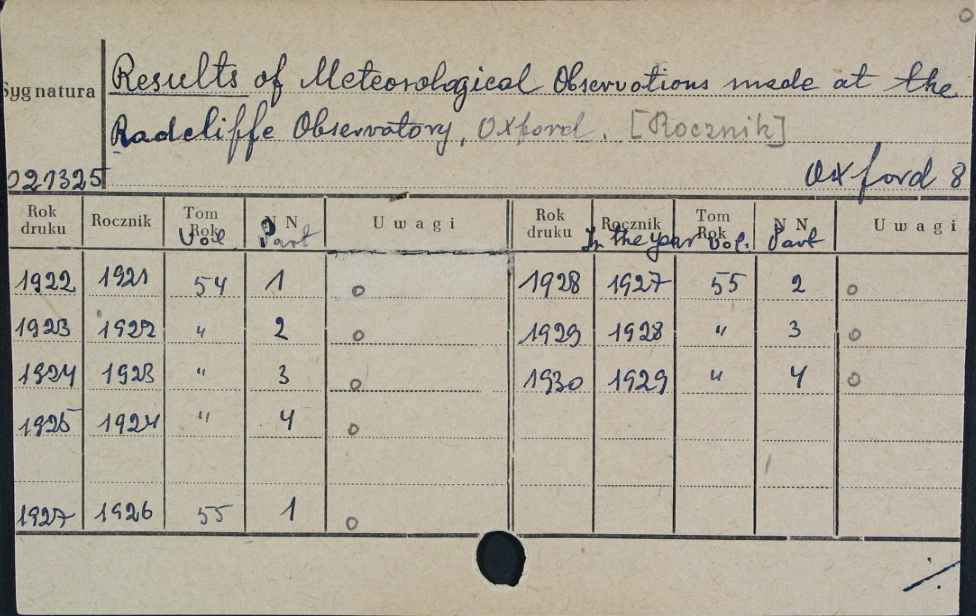 Sygnatura
Results of Meteorological Observations made at the
Radcliffe Observatory, Oxford. [Rocznik]
021325 Oxford 8
Rok druku Rocznik Tom Rok N N Uwagi Rok druku Rocznik Tom Rok N N Uwagi
Vol Part In the year vol. Part
1922 1921 54 1 o 1928 1927 55 2 o
1923 1922 " 2 o 1929 1928 " 3 o
1924 1923 " 3 o 1930 1929 " 4 o
1925 1924 " 4 o
1927 1926 55 1 o